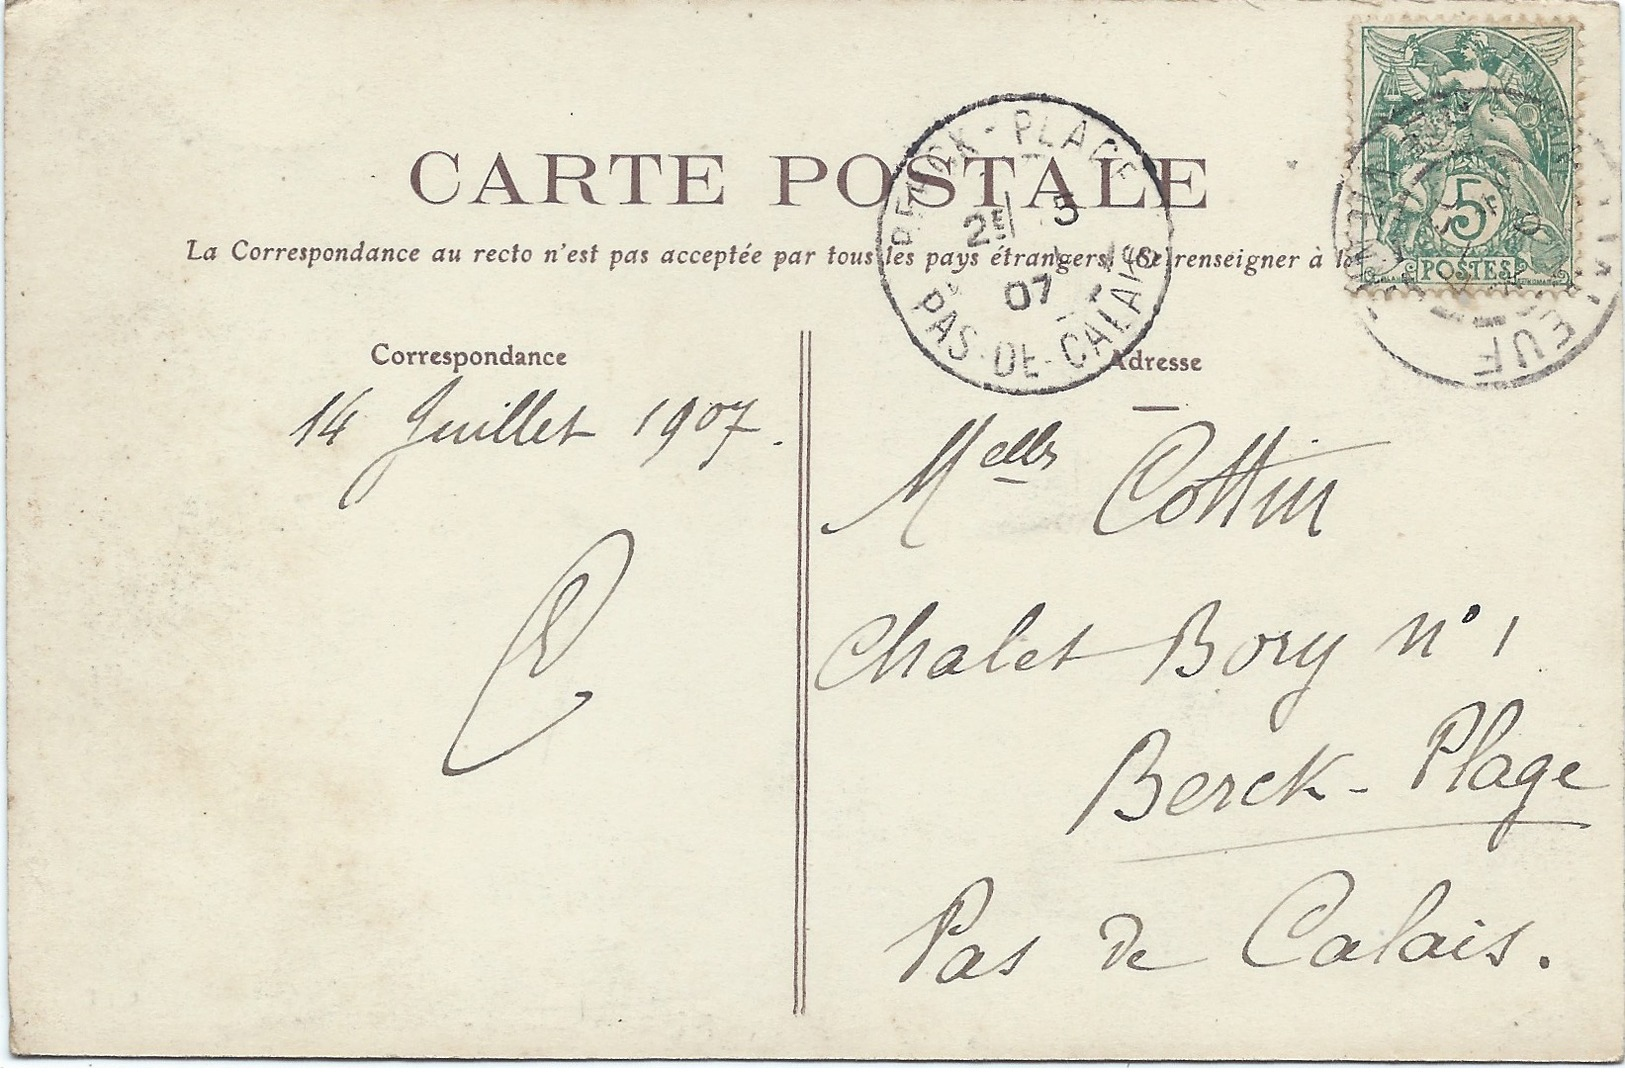 CARTE POSTALE
La Correspondance au recto n'est pas acceptée par tous les pays étrangers (Se renseigner à la
Correspondance
14 Juillet 1907.
Adresse
Melles Cottin
Chalet Bory N° 1
Berck-Plage
Pas de Calais.
BERCK-PLAGE
2E 5
07
PAS-DE-CALAIS
5
POSTES